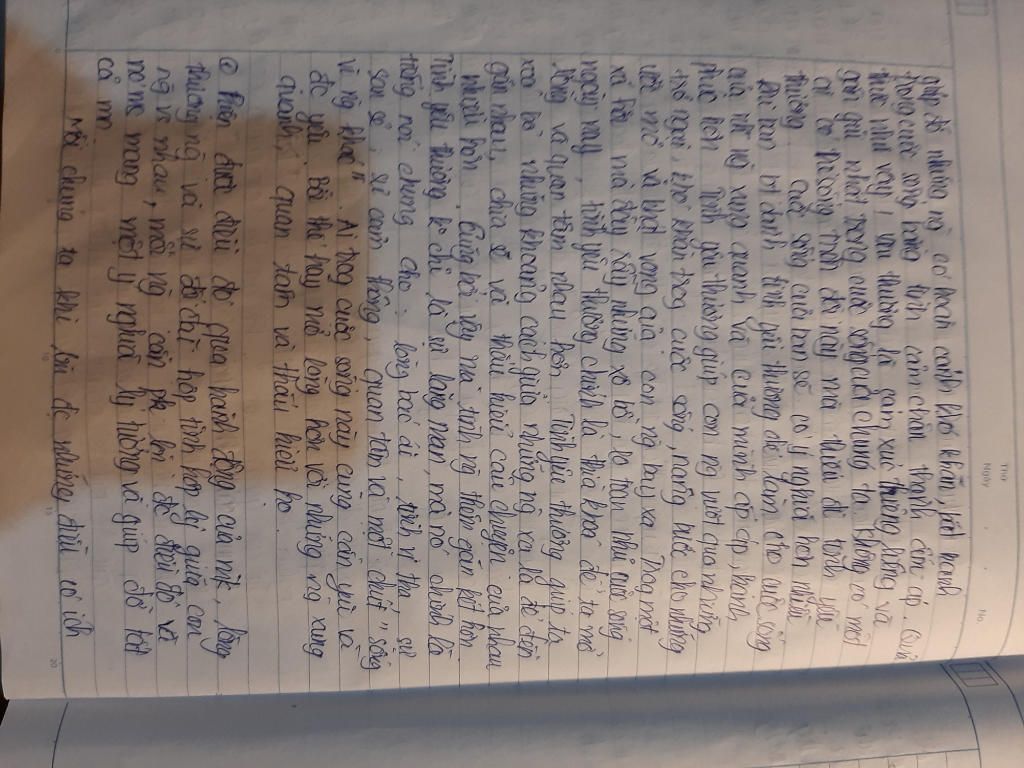 Thứ
Ngày
No.
giúp đỡ những ng̀ có hoàn cảnh khó khăn, bất hạnh
trong cuộc sống bằng tình cảm chân thành
thực như vậy, yêu thương là cảm xúc thiêng liêng và
gần gũi nhất trong cuộc sống của chúng ta. không có một
ai có thể sống trên đời này mà thiếu đi tình yêu
thương. cuộc sống của bạn sẽ có ý nghĩa hơn nhiều
khi bạn bt dành tình yêu thương để làm cho cuộc sống
của mn ng̀ xung quanh và của mình hạnh
phúc hơn. Tình yêu thương giúp con ng̀ vượt qua những
trở ngại, khó khăn trog cuộc sống, nâng bước cho những
ước mơ và khát vọng của con ng̀ bay xa. Trog một
xã hội mà đầy rẫy những xô bồ, lo toan như cuộc sống
ngày nay, tình yêu thương chính là thìa khoá để ta mở
lòng và quan tâm nhau hơn. Tình yêu thương giúp ta
xoá bỏ những khoảng cách giữa những ng̀ xa lạ để đến
gần nhau, chia sẻ và thấu hiểu câu chuyện của nhau
nhiều hơn. Cũng bởi vậy mà tình ng̀ thêm gắn kết hơn.
Tình yêu thương k chỉ là sự lãng mạn, mà nó chính là
tiếng nói chung cho lòng bác ái, tình vị tha, sự
san sẻ, sự cảm thông, quan tâm và một chút "sống
vì ng̀ khác". Ai trog cuộc sống này cũng cần yêu và
đc yêu. Bởi thế hãy mở lòng hơn với những ng̀ xung
quanh, quan tâm và thấu hiểu họ.
Biến đổi điều đó qua hành động của mk, lòng
thương ng̀ và sự đối đãi hợp tình hợp lý giữa con
ng̀ vs nhau, mỗi ng̀ cần phải
nó mang một ý nghĩa lý tưởng và giúp đỡ tất
cả mn
Mỗi chúng ta khi làm đc những điều có ích